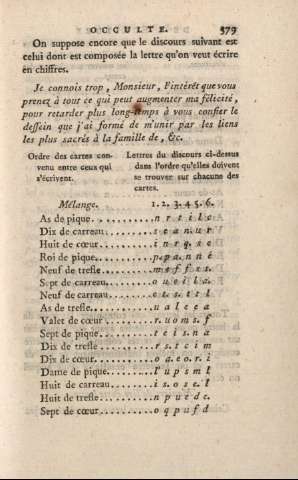 OCCULTE. 379
On suppose encore que le discours suivant est
celui dont est composée la lettre qu'on veut écrire
en chiffres.
Je connois trop, Monsieur, l'intérêt que vous
prenez à tout ce qui peut augmenter ma félicité,
pour retarder plus long-temps à vous confier le
dessein que j'ai formé de m'unir par les liens
les plus sacrés à la famille de, &c.
Ordre des cartes con-
venu entre ceux qui
s'écrivent.
Lettres du discours ci-dessus
dans l'ordre qu'elles doivent
se trouver sur chacune des
cartes.
Mélange. 1. 2. 3. 4. 5. 6.
As de pique
Dix de carreau
Huit de cœur
Roi de pique
Neuf de trefle
Sept de carreau
Neuf de carreau
As de trefle
Valet de cœur
Sept de pique
Dix de trefle
Dix de cœur
Dame de pique
Huit de carreau
Huit de trefle
Sept de cœur